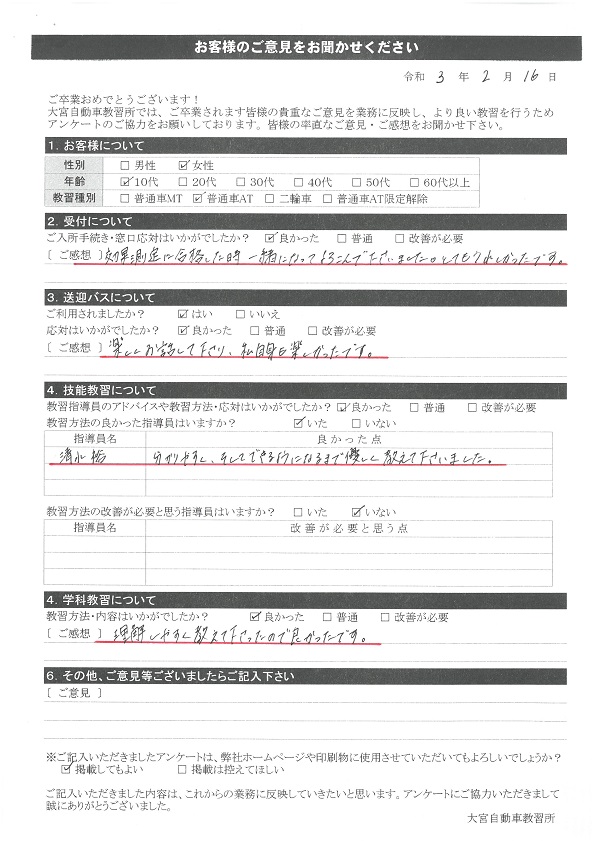 お客様のご意見をお聞かせください
令和 3 年 2 月 16 日
ご卒業おめでとうございます！
大宮自動車教習所では、ご卒業されます皆様の貴重なご意見を業務に反映し、より良い教習を行うため
アンケートのご協力をお願いしております。皆様の率直なご意見・ご感想をお聞かせ下さい。
1. お客様について
性別 □ 男性 ☑ 女性
年齢 ☑ 10代 □ 20代 □ 30代 □ 40代 □ 50代 □ 60代以上
教習種別 □ 普通車MT ☑ 普通車AT □ 二輪車 □ 普通車AT限定解除
2. 受付について
ご入所手続き・窓口応対はいかがでしたか？ ☑ 良かった □ 普通 □ 改善が必要
[ ご感想 ] 効果測定に合格した時 一緒になってよろこんで下さいました。とてもうれしかったです。
3. 送迎バスについて
ご利用されましたか？ ☑ はい □ いいえ
応対はいかがでしたか？ ☑ 良かった □ 普通 □ 改善が必要
[ ご感想 ] 楽しくお話して下さり、私自身も楽しかったです。
4. 技能教習について
教習指導員のアドバイスや教習方法・応対はいかがでしたか？ ☑ 良かった □ 普通 □ 改善が必要
教習方法の良かった指導員はいますか？ ☑ いた □ いない
指導員名 良かった点
清水 分かりやすく、そしてできるようになるまで優しく教えて下さいました。
教習方法の改善が必要と思う指導員はいますか？ □ いた ☑ いない
指導員名 改善が必要と思う点
4. 学科教習について
教習方法・内容はいかがでしたか？ ☑ 良かった □ 普通 □ 改善が必要
[ ご感想 ] 理解しやすく教えて下さったので良かったです。
6. その他、ご意見等ございましたらご記入下さい
[ ご意見 ]
※ご記入いただきましたアンケートは、弊社ホームページや印刷物に使用させていただいてもよろしいでしょうか？
☑ 掲載してもよい □ 掲載は控えてほしい
ご記入いただきました内容は、これからの業務に反映していきたいと思います。アンケートにご協力いただきまして
誠にありがとうございました。
大宮自動車教習所